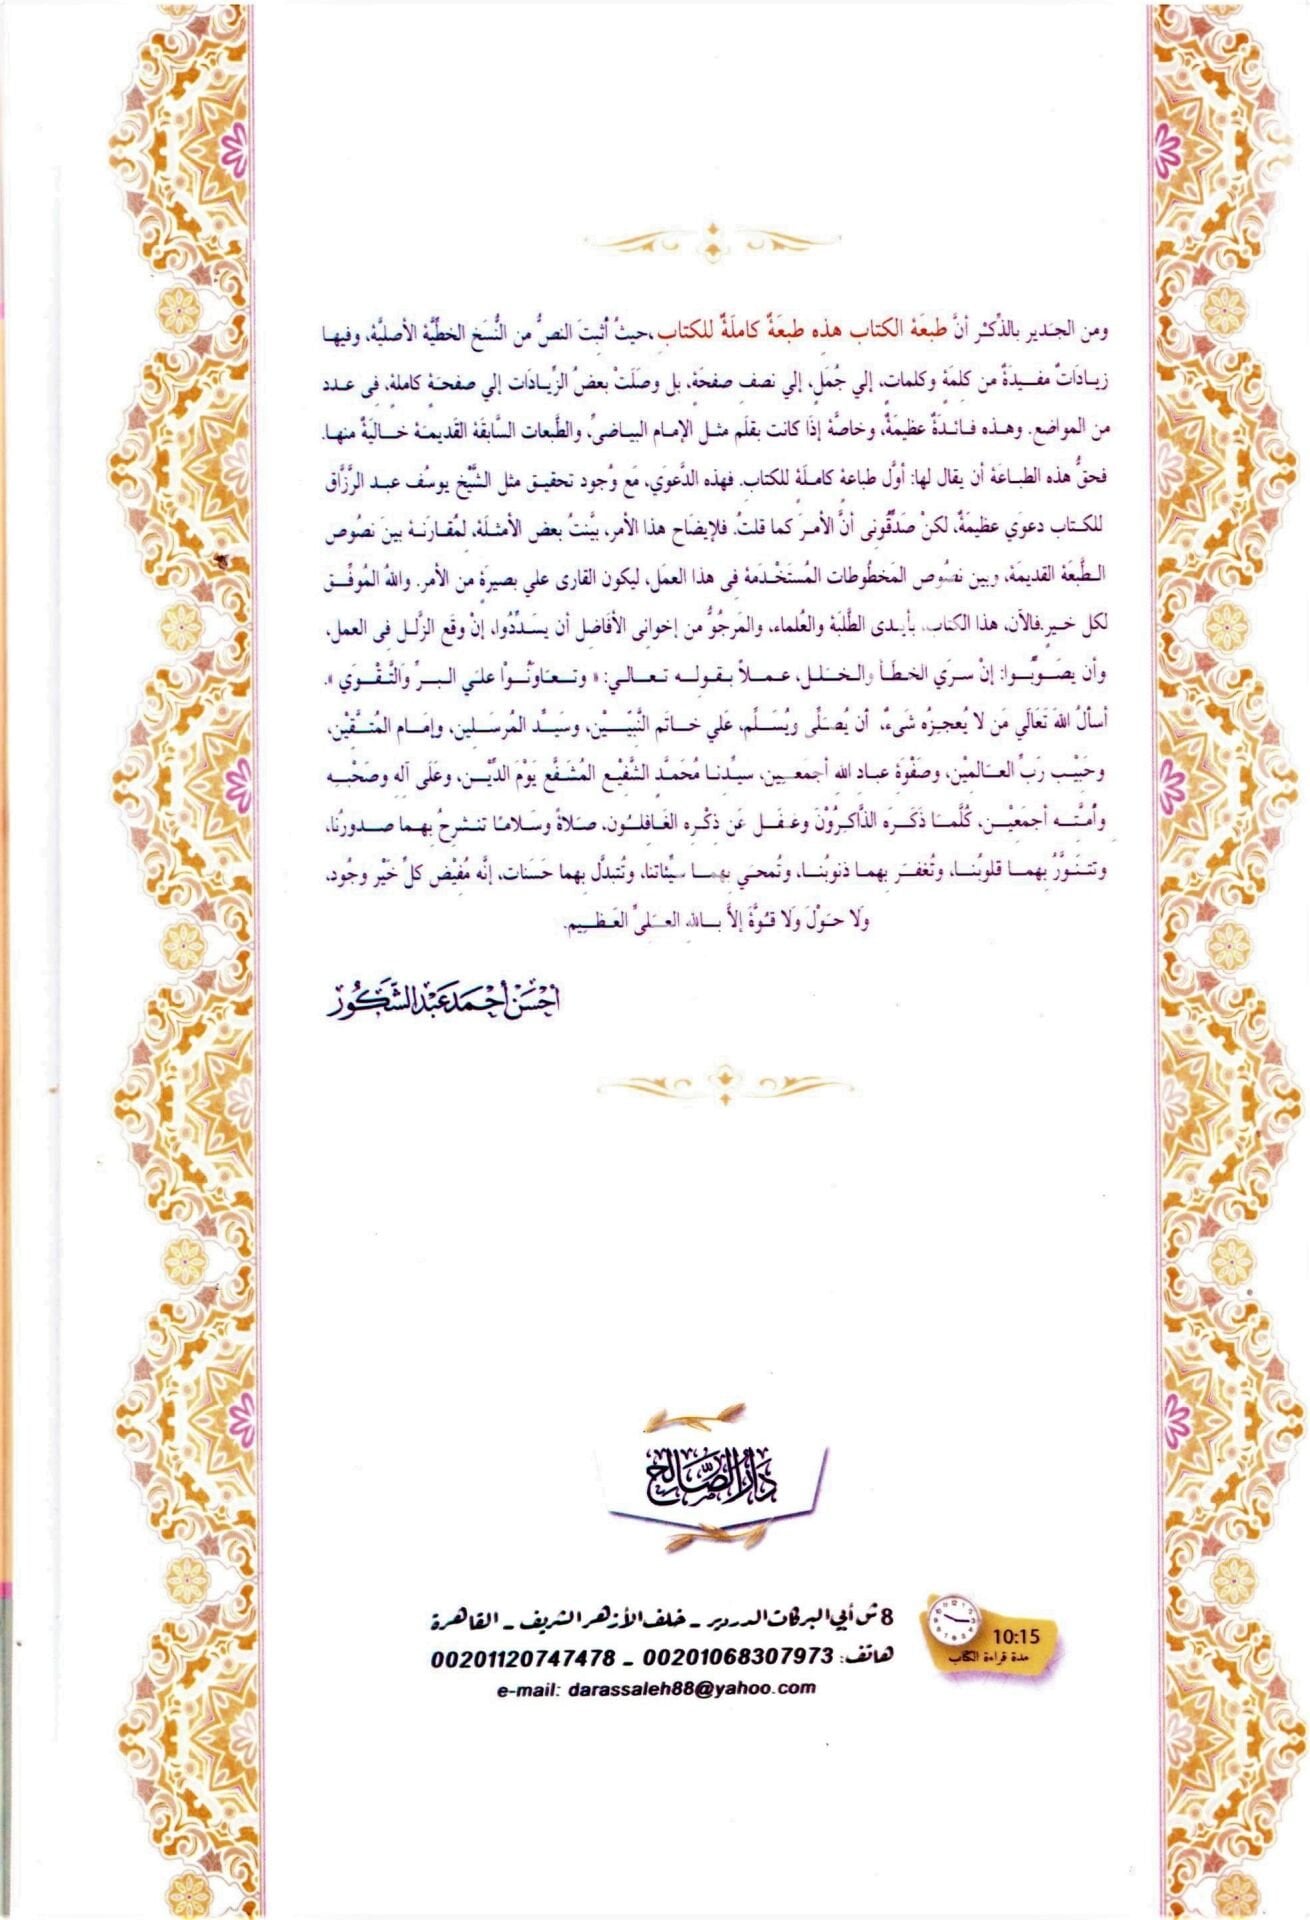 ومن الجدير بالذِّكْر أنَّ طبعَة الكتاب هذه طبعَةٌ كاملَةٌ للكتاب،حيثُ أثبتَ النصُّ من النُّسَخ الخطيَّة الأصليَّة، وفيها
زيادَاتٌ مفيدَةٌ من كلمَة وكلمات، إلي جُمَلٍ، إلي نصف صفحَة، بل وصلَتْ بعضُ الزِّيادَات إلي صفحَة كاملة، فى عدد
من المواضع. وهذه فائدَةٌ عظيمَةٌ، وخاصَّة إذَا كانت بقلَم مثل الإمام البياضيِّ، والطَّبعات السَّابقَة القَديمَة خاليَةٌ منها.
فحقُّ هذه الطباعَة أن يقال لها: أوَّل طباعة كاملَة للكتاب. فهذه الدَّعوَي، مَع وُجود تحقيق مثل الشَّيْخ يوسُف عبد الرزَّاق
للكتاب دعوَي عظيمَةٌ، لكنْ صَدِّقُونى أنَّ الأمرَ كما قلتُ. فلإيضَاح هذا الأمر، بيَّنتُ بعض الأمثلَة، لمُقارَنة بينَ نصُوص
الطَّبعَة القديمَة، وبين نصُوص المَخطُوطات المُستَخْدمَة فى هذا العمَل، ليكون القارى علي بصيرَة من الأمر. واللهُ المُوفِّق
لكل خير.فالآن، هذا الكتاب، بأيدى الطَّلبَة والعُلماء، والمَرجُوُّ من إخوانى الأفاضل أن يسَدِّدُوا، إنْ وقَع الزَّلل فى العمل،
وأن يصَوِّبُوا: إنْ سرَي الخطَأ والخلل، عملاً بقوله تعالي: « وتعَاوَنُوْا علَي البرِّ وَالتَّقْوَي ».
أسألُ اللهَ تَعَالَي مَن لا يُعجزُه شَيءٌ، أن يُصَلِّى ويُسَلِّم، علَي خاتَم النَّبِيّيْن، وسيِّد المُرسَلين، وإمَام المُتقِّيْن،
وحَبيْب رَبِّ العالَميْن، وصَفْوَة عباد الله أجمَعين، سيِّدنا مُحَمَّد الشَّفيْع المُشَفَّع يَوْمَ الدِّيْن، وعَلَى آله وصَحْبه
وأمَّته أجمَعيْن، كُلَّمَا ذَكَرَه الذَّاكرُوْنَ وغفَل عَن ذكْره الغَافلُون، صَلاةً وسَلامًا تنشَرحُ بهما صدورُنا،
وتتنَوَّرُ بهما قلوبُنا، وتُغفَر بهما ذنوبُنا، وتُمحَي بهما سيِّئاتنا، وتُتبدَّل بهما حَسنات، إنَّه مُفيْض كلِّ خَيْر وجُود،
وَلا حَوْلَ وَلا قوَّةَ إلاَّ باللهِ العَليِّ العَظيم.
أحْسَنْ أحْمَد عَبْد الشَّكُور
دَارُ الصَّالِح
8 ش أبي البركات الدردير - خلف الأزهر الشريف - القاهرة
10:15
هاتف: 00201068307973 - 00201120747478
مدة قراءة الكتاب
e-mail: darassaleh88@yahoo.com